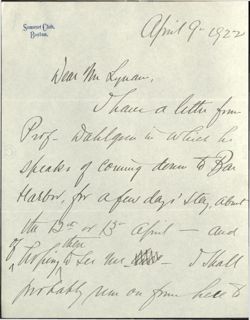 Somerset Club,
Boston.
April 9- 1922
Dear Mr Lyman,
I have a letter from
Prof- Dahlgren in which he
speaks of coming down to Bar
Harbor, for a few days' stay, about
the 12th or 13th April - and
of hoping then to see me - I shall
probably run on from here to